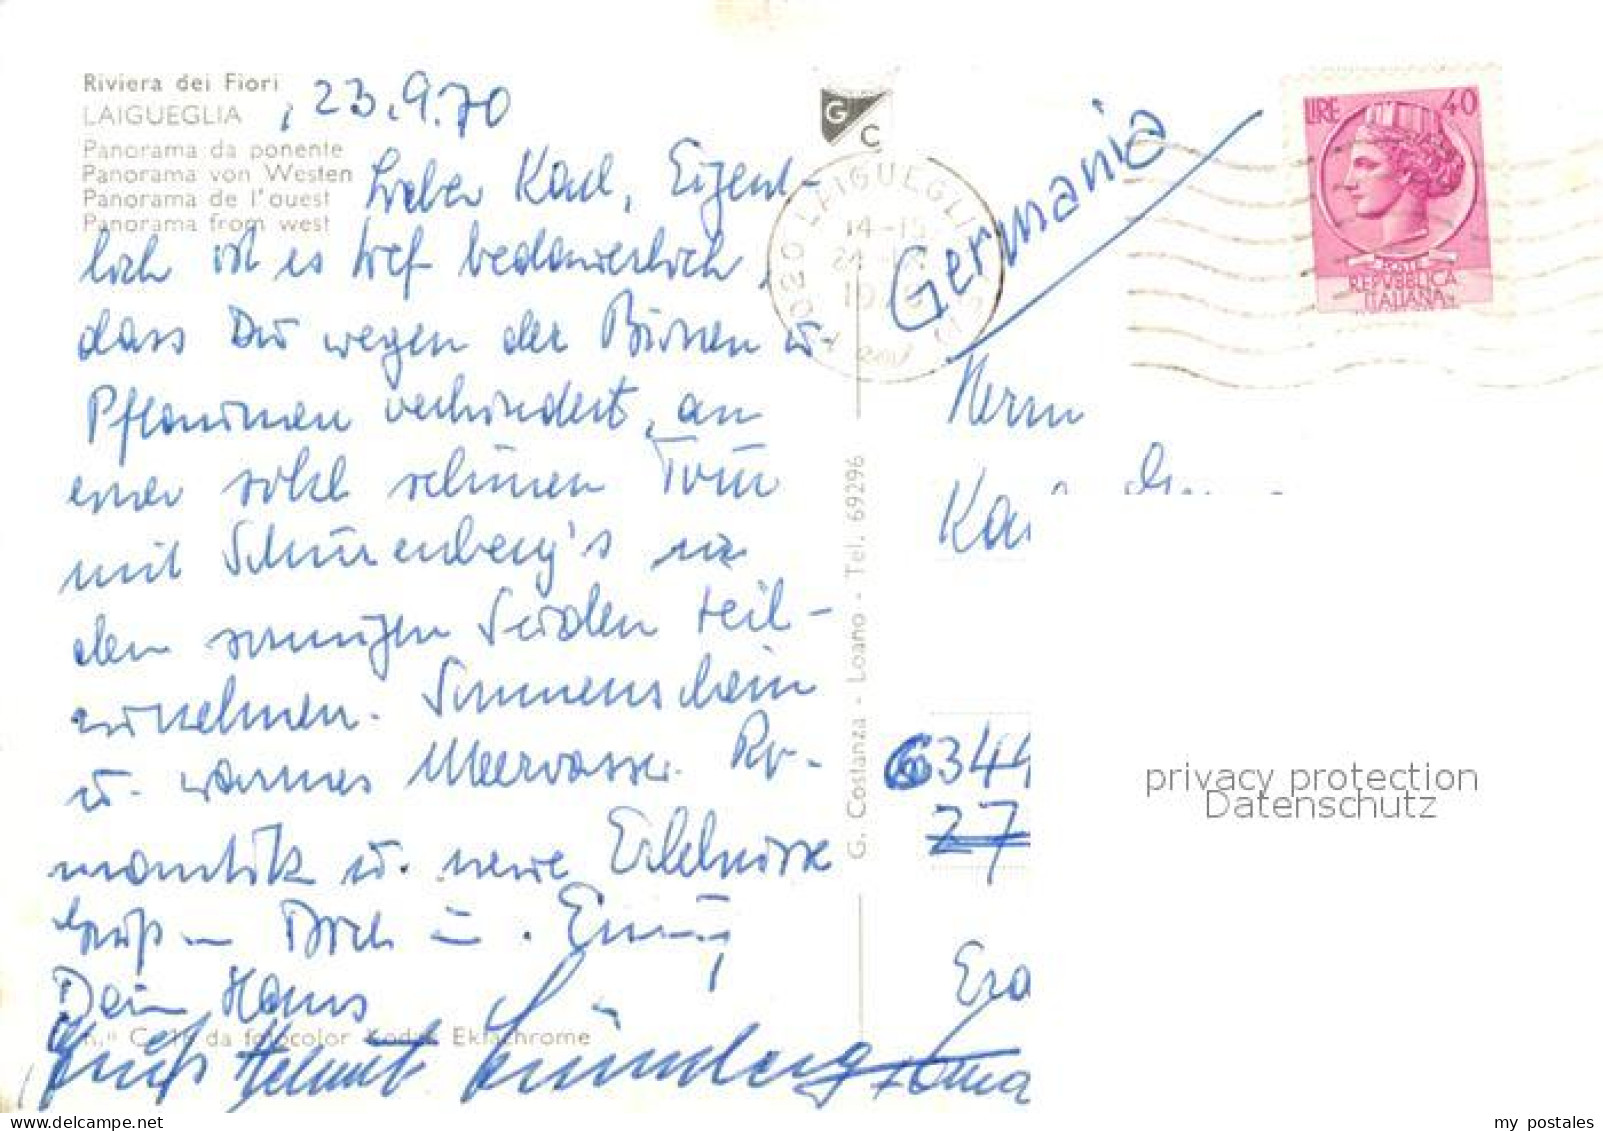 Riviera dei Fiori
LAIGUEGLIA, 23.9.70
Panorama da ponente
Panorama von Westen
Panorama de l'ouest
Panorama from west
Lieber Karl, Eigent-
lich ist es tief bedauerlich,
dass Du wegen der Birnen u
Pflaumen verhindert, an
einer solch schönen Tour
mit Schürenberg's in
den sonnigen Süden teil-
zunehmen. Sonnenschein
u. warmes Meerwasser. Ro-
mantik u. neue Erlebnisse
Gruß - Dich u.
Dein Hans
da fotocolor Kodak Ektachrome
Gruß Helmut
G. Costanza - Loano - Tel. 69296
G C
LAIGUEGLIA
14-15
Germania
LIRE 40
POSTE
REPVBBLICA
ITALIANA
Herrn
6344
27
privacy protection
Datenschutz
my postales